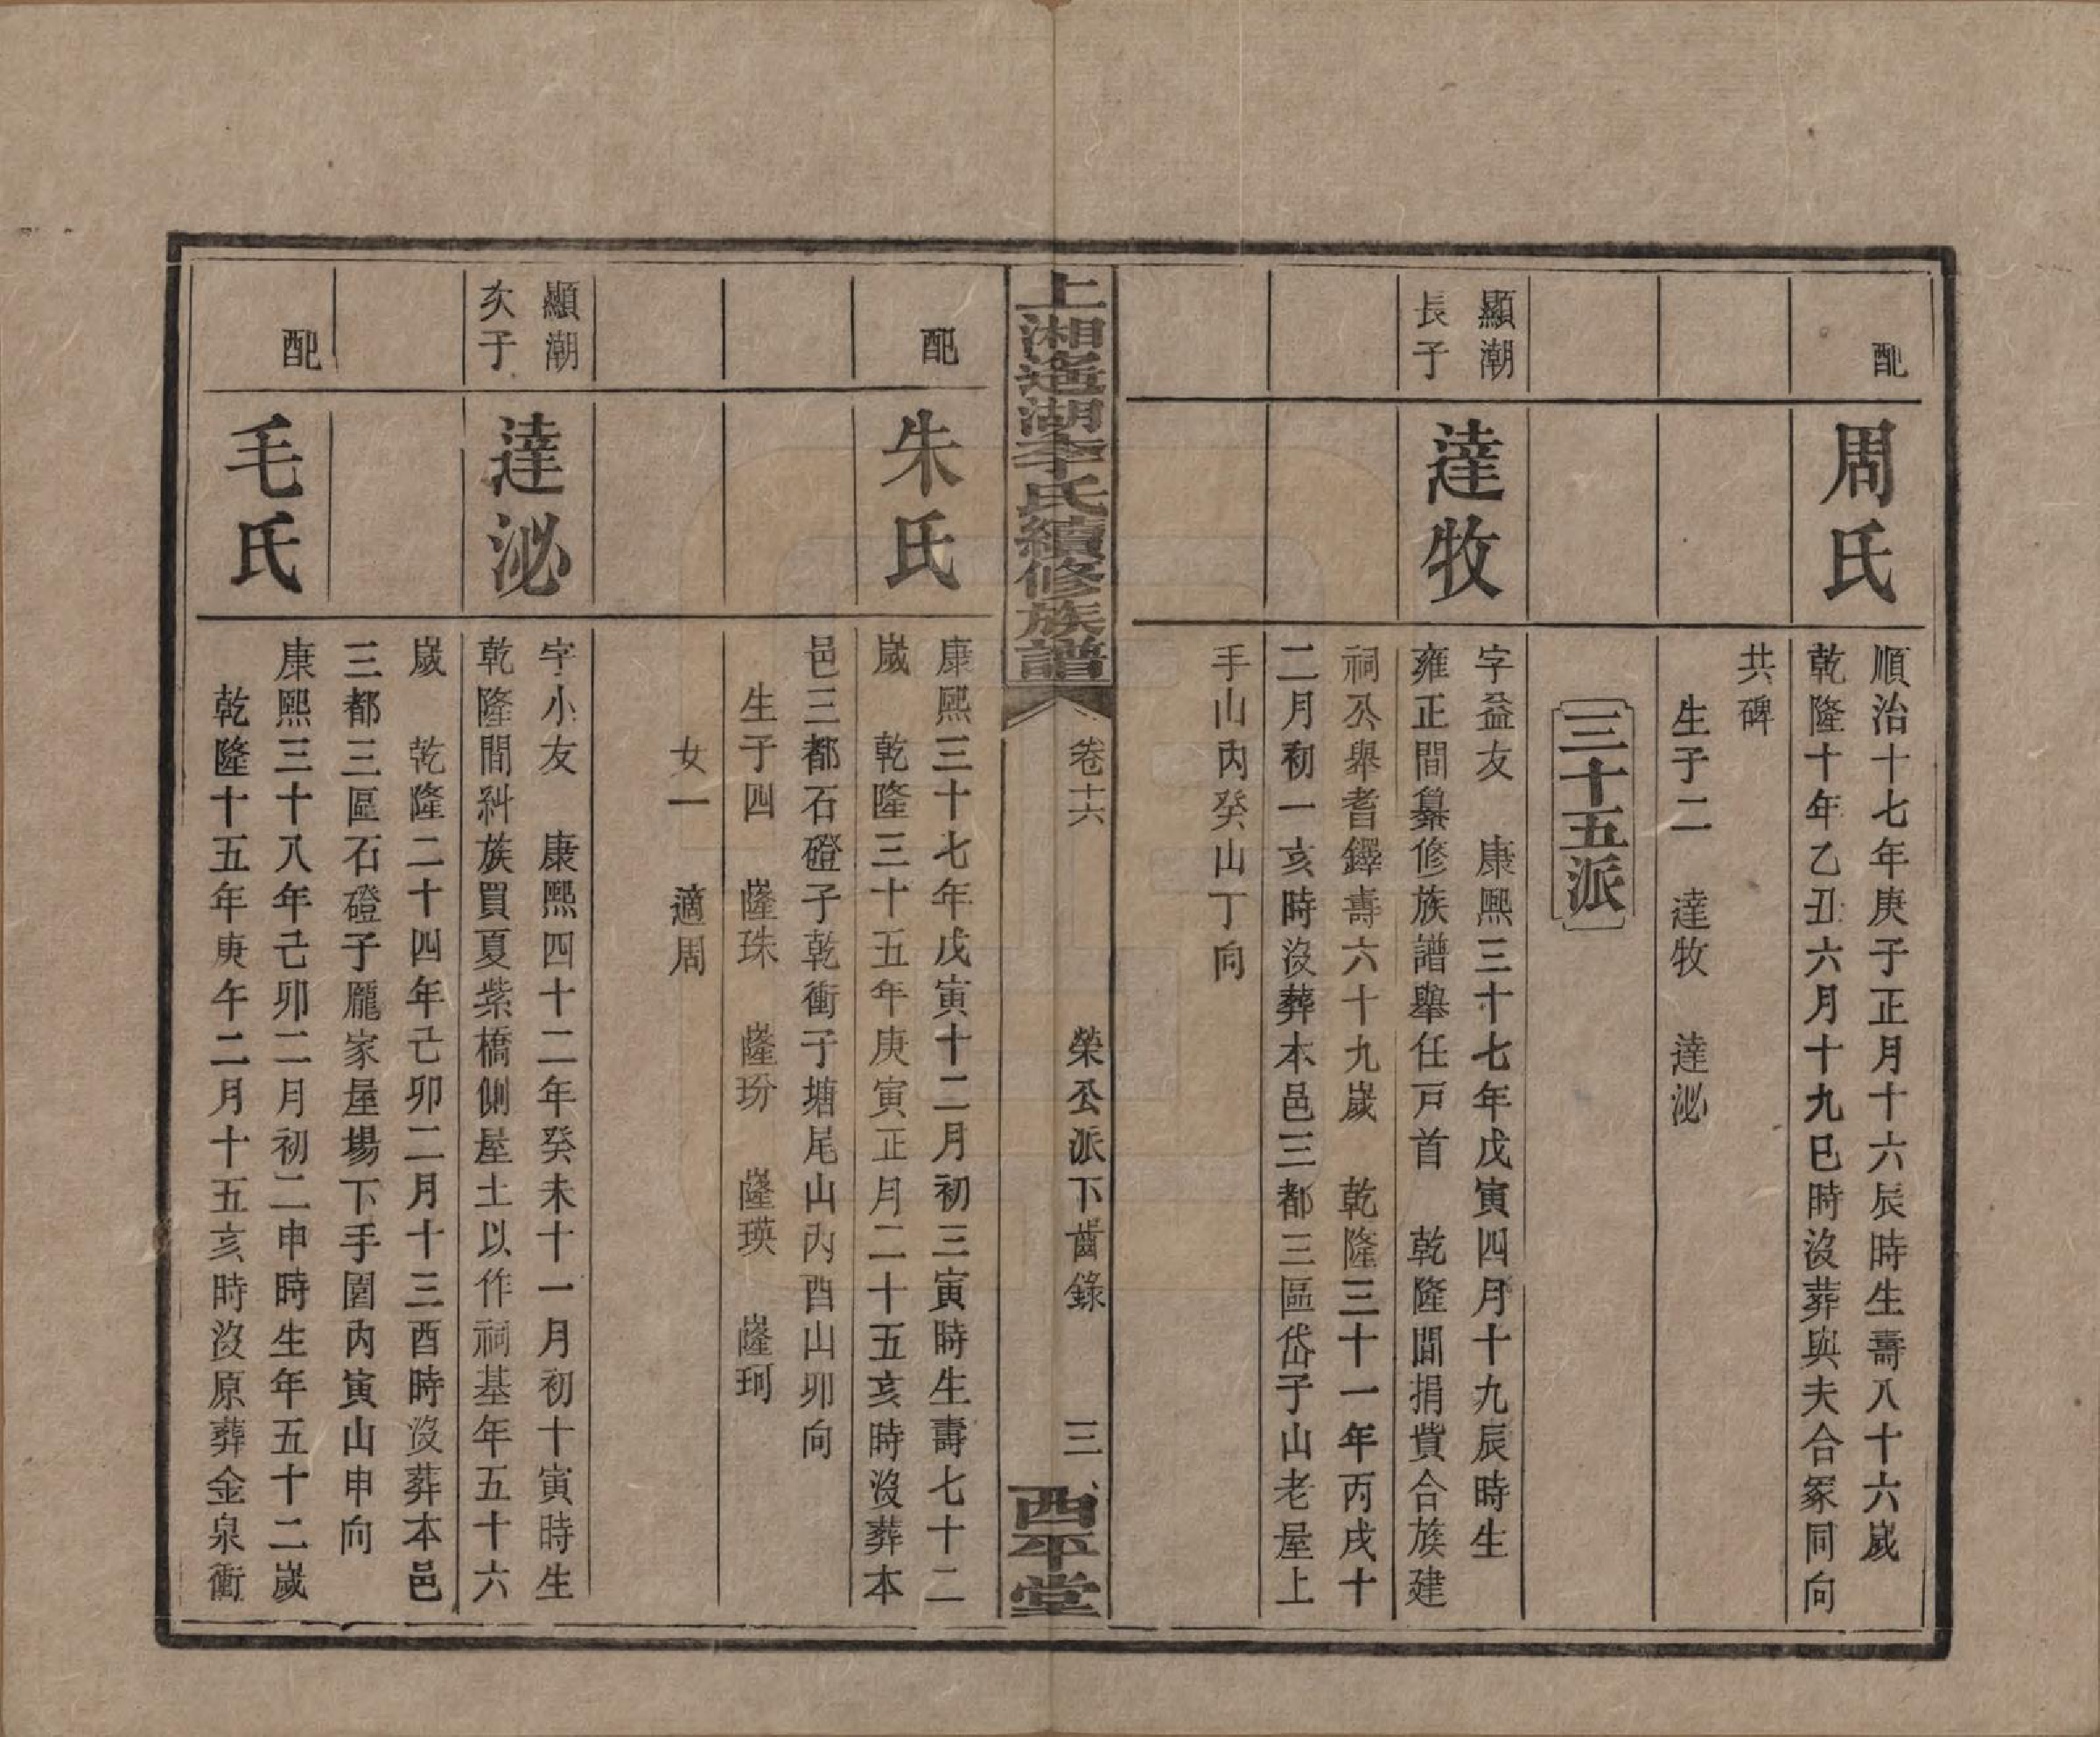 配
周氏
順治十七年庚子正月十六辰時生壽八十六歲
乾隆十年乙丑六月十九巳時沒葬與夫合冢同向
共碑
生子二　達牧　達泌
三十五派
顯潮
長子
達牧
字益友　康熙三十七年戊寅四月十九辰時生
雍正間纂修族譜舉任戸首　乾隆間捐貲合族建
祠公舉耆鐸壽六十九歲　乾隆三十一年丙戌十
二月初一亥時沒葬本邑三都三區岱子山老屋上
手山內癸山丁向
上湘洍湖李氏續修族譜
卷十六
榮公派下齒錄
三
西平堂
配
朱氏
康熙三十七年戊寅十二月初三寅時生壽七十二
歲　乾隆三十五年庚寅正月二十五亥時沒葬本
邑三都石磴子乾衝子塘尾山內酉山卯向
生子四　隆珠　隆玢　隆瑛　隆珂
女一　適周
顯潮
次子
達泌
字小友　康熙四十二年癸未十一月初十寅時生
乾隆間糾族買夏紫橋側屋土以作祠基年五十六
歲　乾隆二十四年己卯二月十三酉時沒葬本邑
三都三區石磴子龎家屋場下手園內寅山申向
配
毛氏
康熙三十八年己卯二月初二申時生年五十二歲
乾隆十五年庚午二月十五亥時沒原葬金泉衝